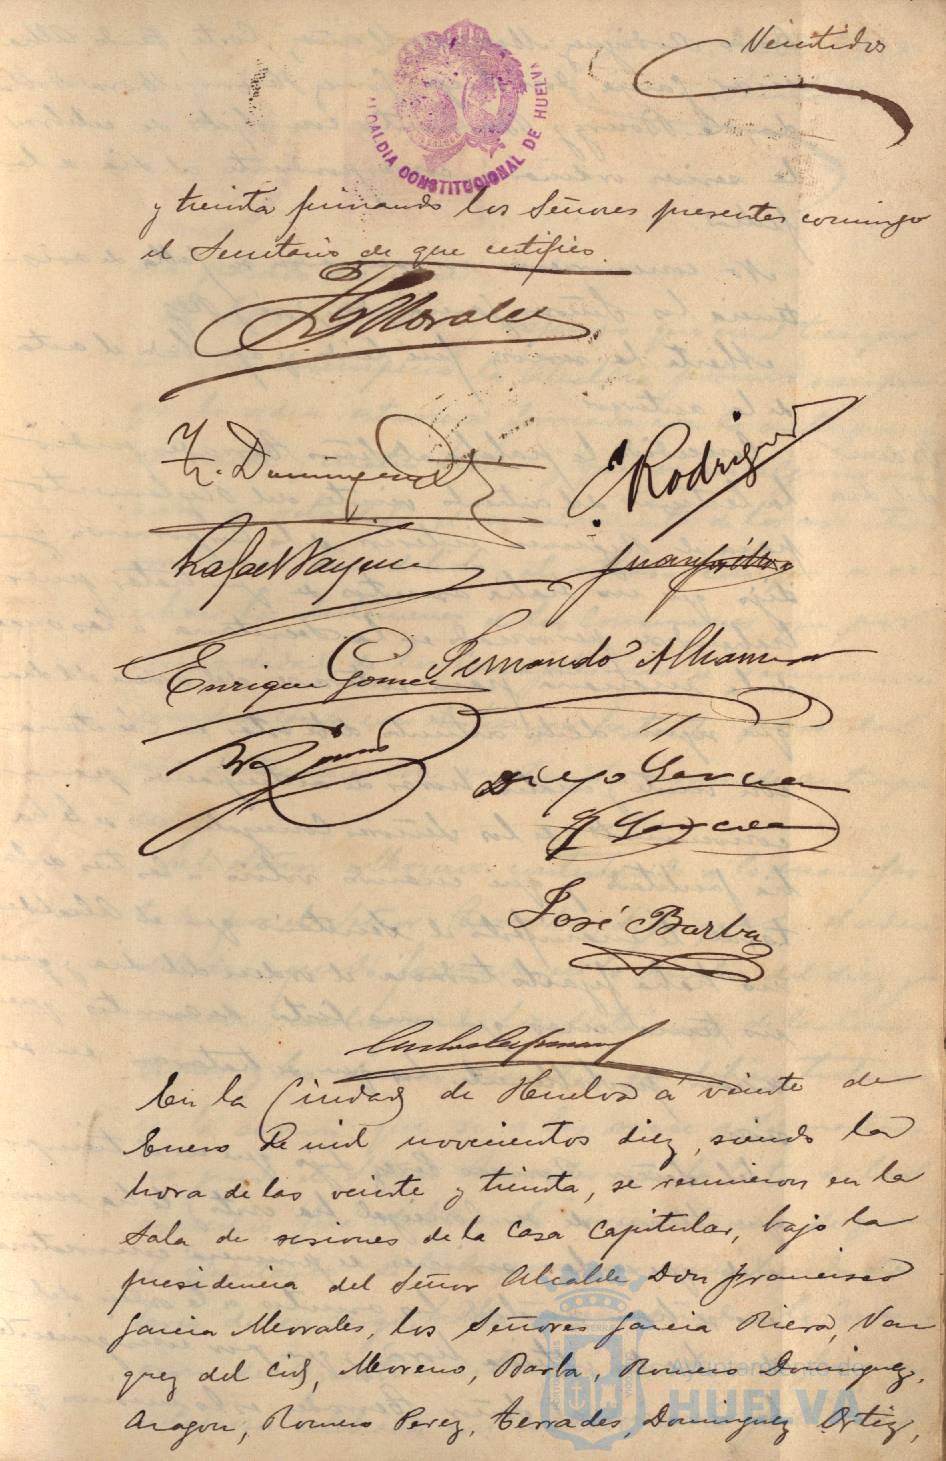 Veintidos
ALCALDIA CONSTITUCIONAL DE HUELVA
y treinta firmando los Señores presentes conmigo
el Secretario de que certifico.
Morales
F. Dominguez
Rodriguez
Rafael Vazquez
Juan
Enrique Gomez Fernando
Diego Garcia
Garcia
José Barba
En la Ciudad de Huelva á veinte de
Enero de mil novecientos diez, siendo la
hora de las veinte y treinta, se reunieron en la
Sala de sesiones de la Casa Capitular, bajo la
presidencia del Señor Alcalde Don Francisco
Garcia Morales, los Señores Garcia Riera, Vaz
quez del Cid, Moreno, Barba, Romero Dominguez,
Aragon, Romero Perez, Terrades, Dominguez Ortiz,
Ayuntamiento de
HUELVA